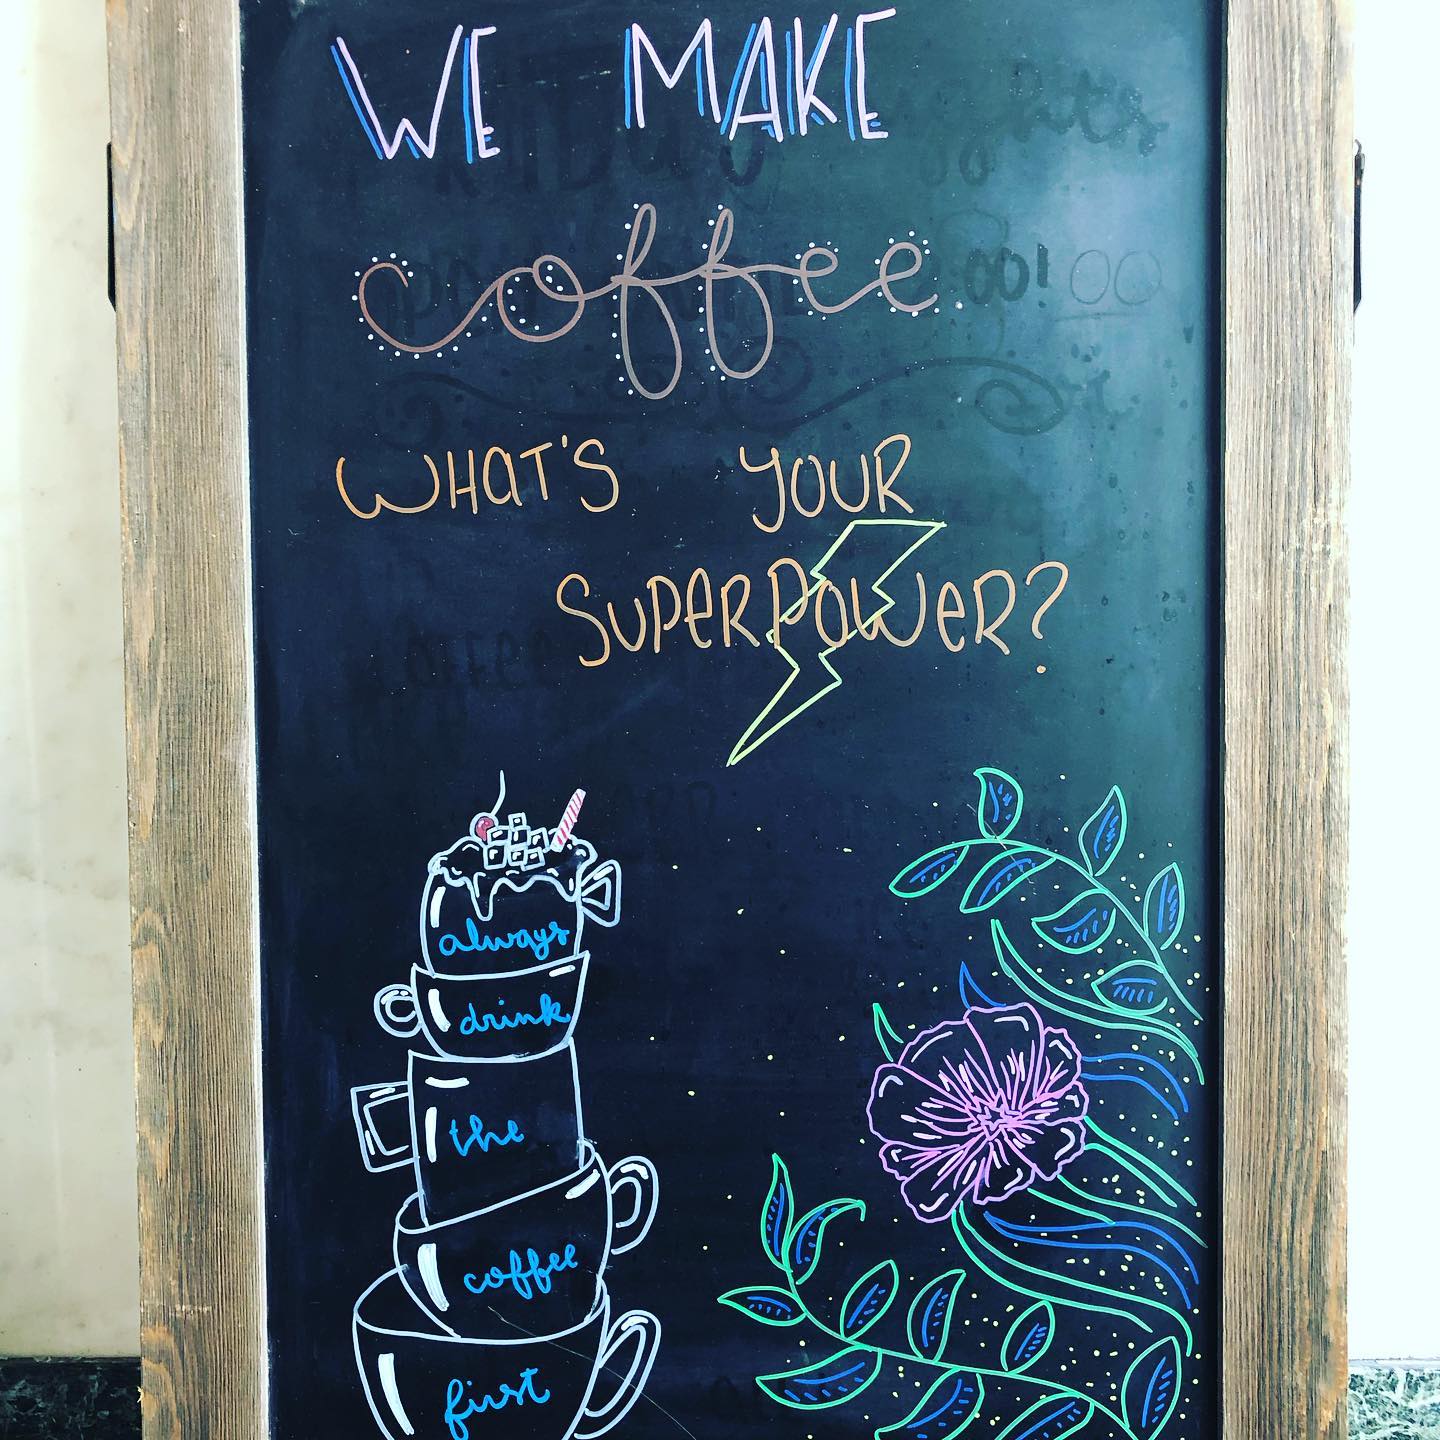 WE MAKE
coffee
WHAT'S YOUR
SUPERPOWER?
always
drink
the
coffee
first